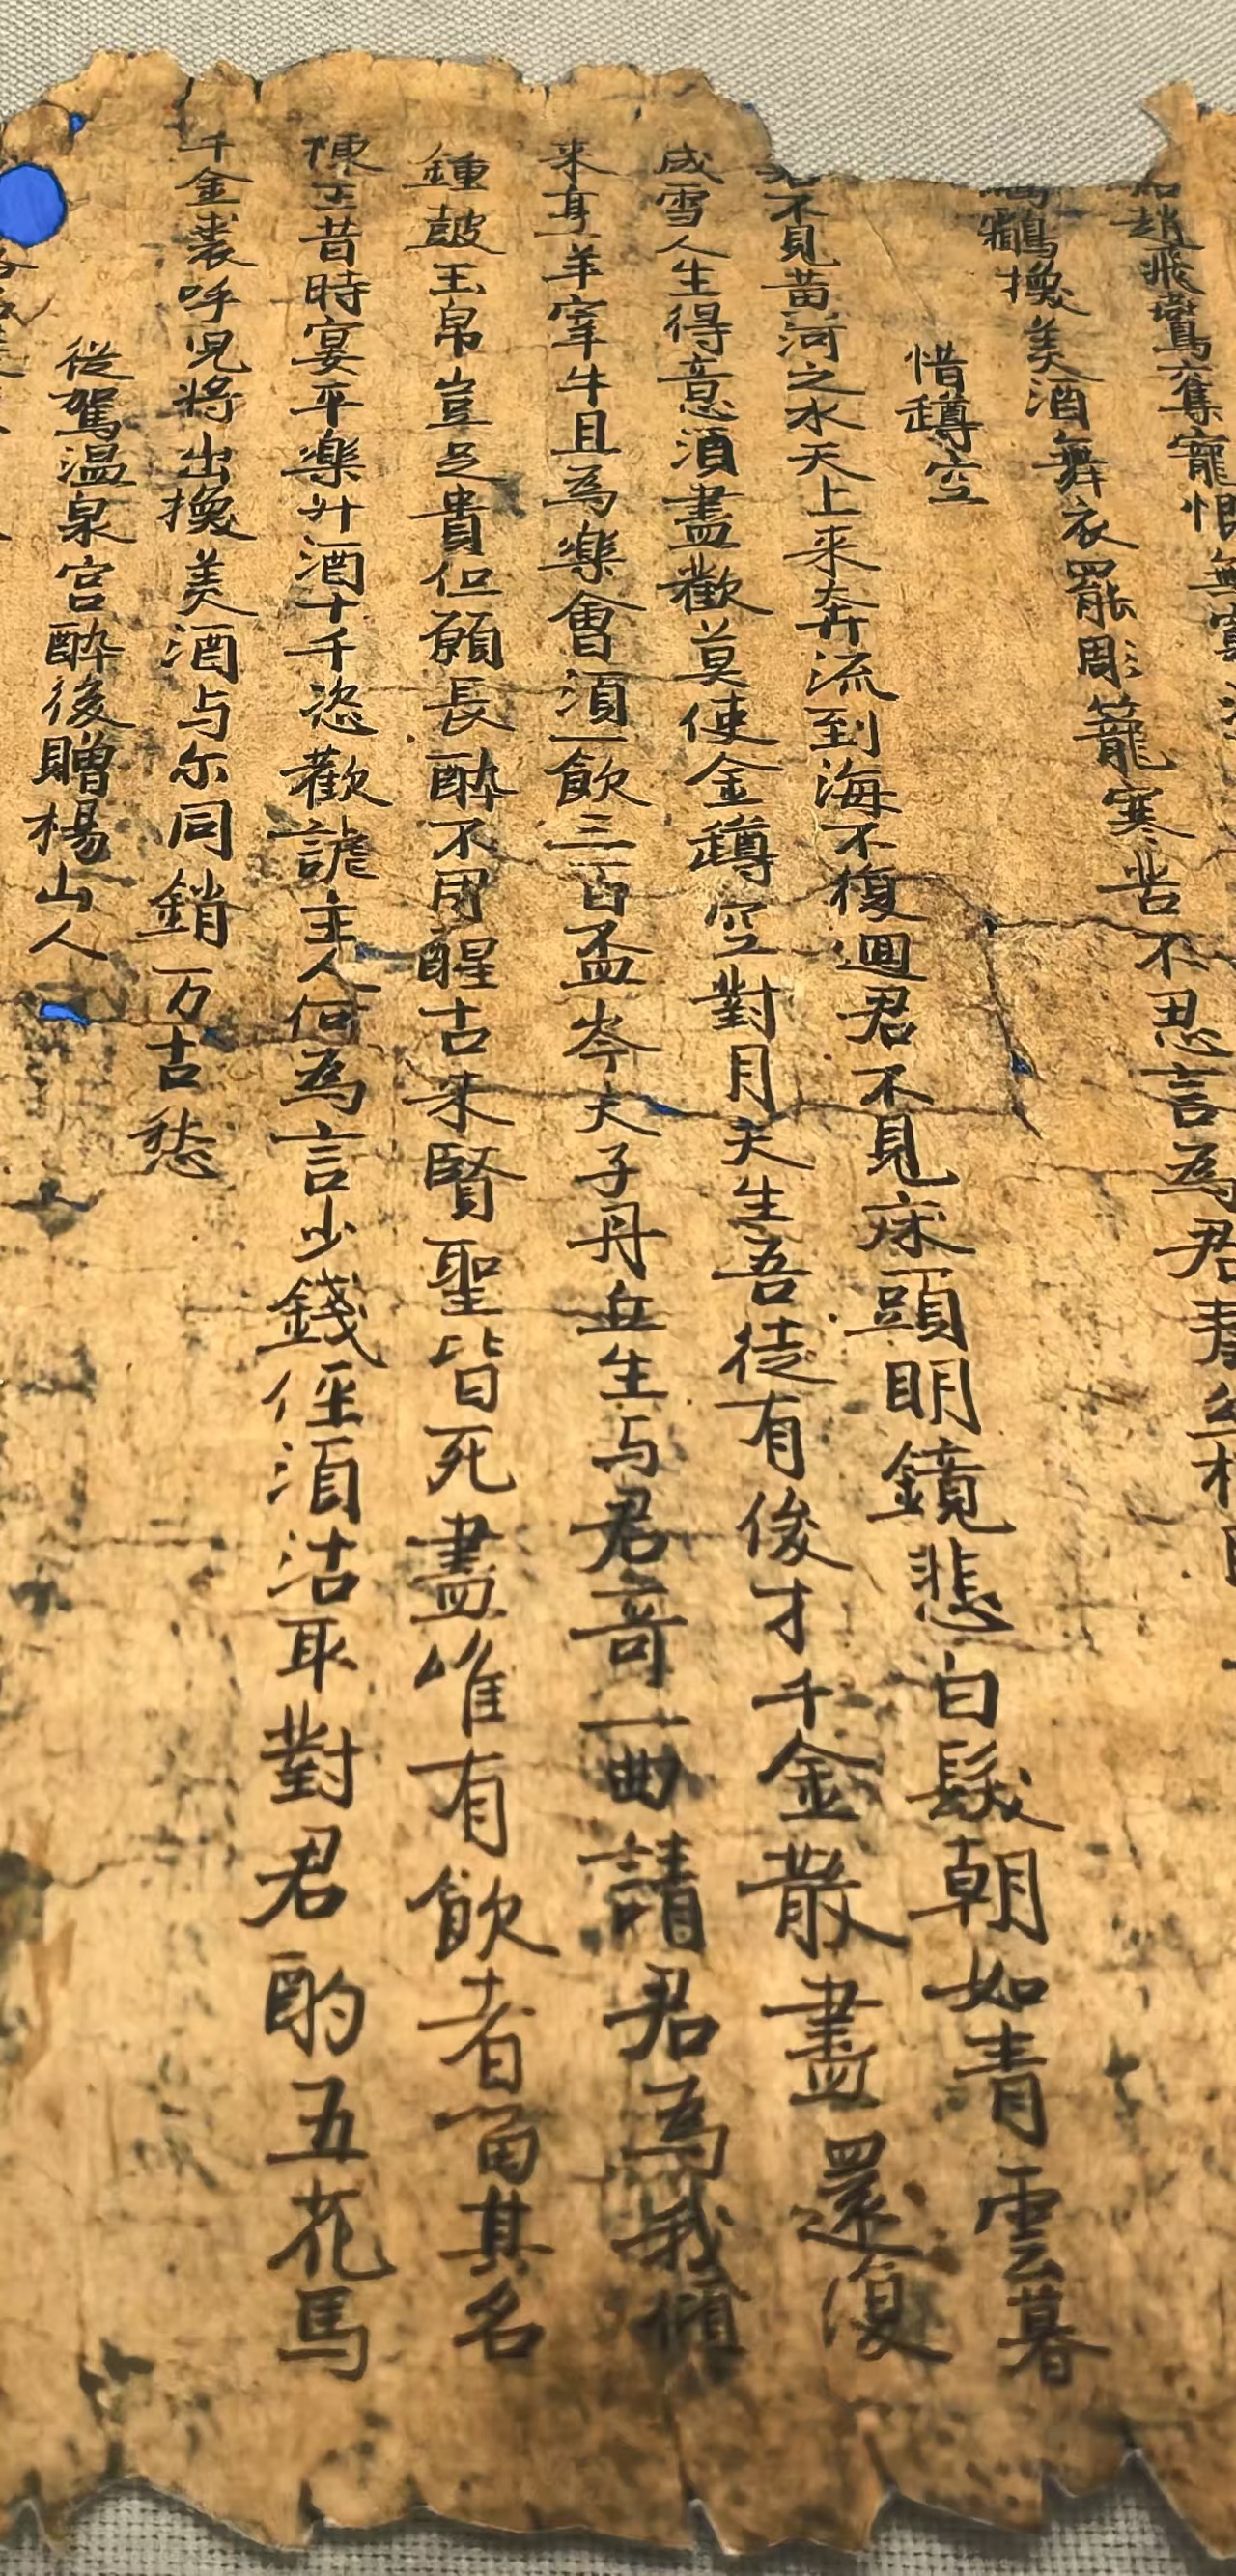 趙飛鷰奪寵恨無
鸘換美酒舞衣罷彫籠寒苦不忍言為君奏絲桐
惜罇空
君不見黃河之水天上来奔流到海不復迴君不見床頭明鏡悲白髮朝如青雲暮
成雪人生得意酒盡歡莫使金罇空對月天生吾徒有俊才千金散盡還復
来烹羊宰牛且為樂會湏一飲三百盃岑夫子丹丘生与君哥一曲請君為我傾
鍾皷玉帛豈足貴但願長醉不用醒古来賢聖皆死盡唯有飲者留其名
陳王昔時宴平樂斗酒十千恣歡謔主人何為言少錢俓湏沽取對君酌五花馬
千金裘呼兒將出換美酒与尔同銷万古愁
從駕温泉宮醉後贈楊山人